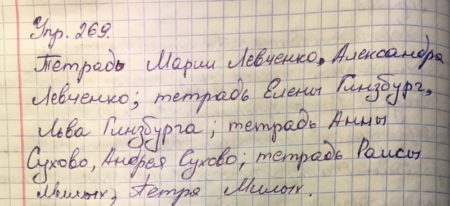 Упр. 269.
Тетрадь Марии Левченко, Александра
Левченко; тетрадь Елены Гинзбург,
Льва Гинзбурга; тетрадь Анны
Сухово, Андрея Сухово; тетрадь Раисы
Милых, Петра Милых.